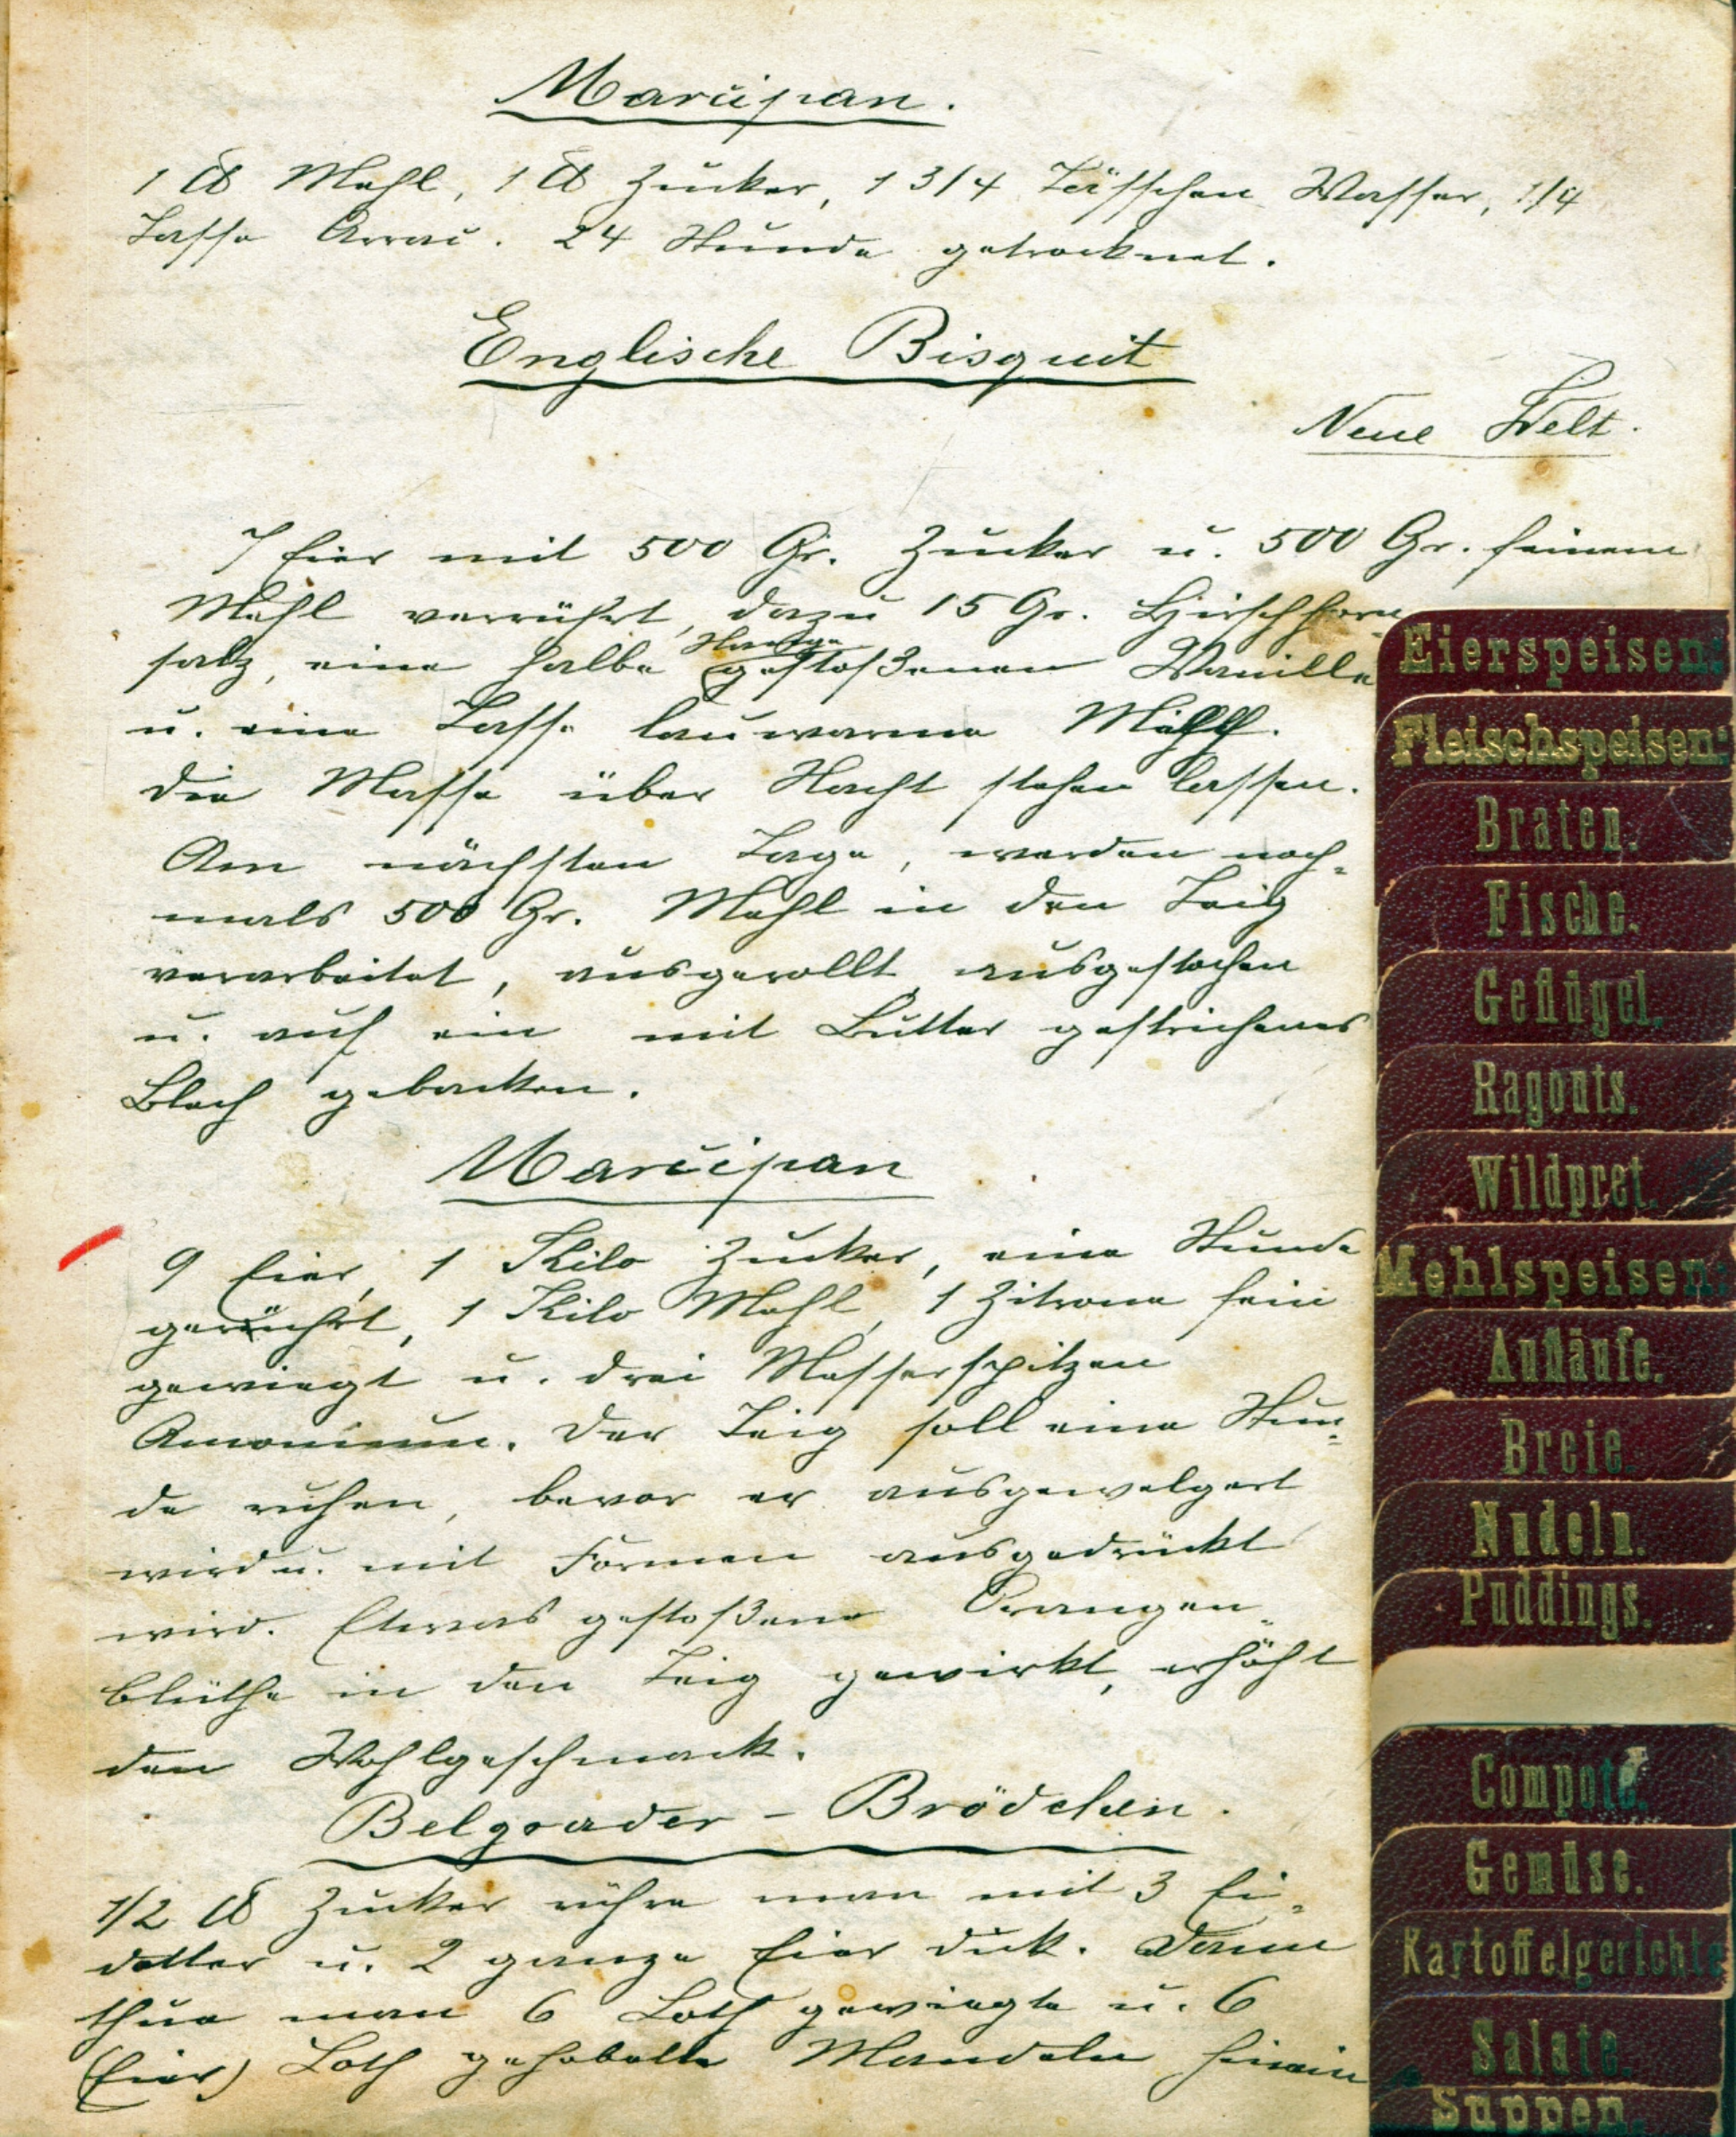 Marcipan.
1 ℔ Mehl, 1 ℔ Zucker, 1 3/4 Täßchen Wasser, 1/4
Tasse Arrac. 24 Stunde getrocknet.
Englische Bisquit
Neue Welt.
7 Eier mit 500 Gr. Zucker u. 500 Gr. feinem
Mehl verrührt, dazu 15 Gr. Hirschhorn-
salz, eine halbe Stange gestoßenen Vanille
u. eine Tasse lauwarme Milch.
die Masse über Nacht stehen lassen.
Am nächsten Tage, werden noch-
mals 500 Gr. Mehl in den Teig
verarbeitet, ausgerollt, ausgestochen
u. auf ein mit Butter gestrichenes
Blech gebacken.
Marcipan
9 Eier, 1 Kilo Zucker, eine Stunde
gerührt, 1 Kilo Mehl, 1 Zitrone fein
gewiegt u. drei Messerspitzen
Amonium. Der Teig soll eine Stun-
de ruhen, bevor er ausgewelgert
wird u. mit Formen ausgedrückt
wird. Etwas gestoßene Orangen-
blüthe in den Teig gewirkt, erhöht
den Wohlgeschmack.
Belgrader - Brödchen.
1/2 ℔ Zucker rühre man mit 3 Ei-
dotter u. 2 ganze Eier dick. Dann
thue man 6 Loth gewiegte u. 6
(Eier) Loth gehobelte Mandeln hinein
Eierspeisen:
Fleischspeisen:
Braten.
Fische.
Geflügel.
Ragouts.
Wildpret.
Mehlspeisen:
Aufläufe.
Breie.
Nudeln.
Puddings.
Compote.
Gemüse.
Kartoffelgerichte
Salate.
Suppen.